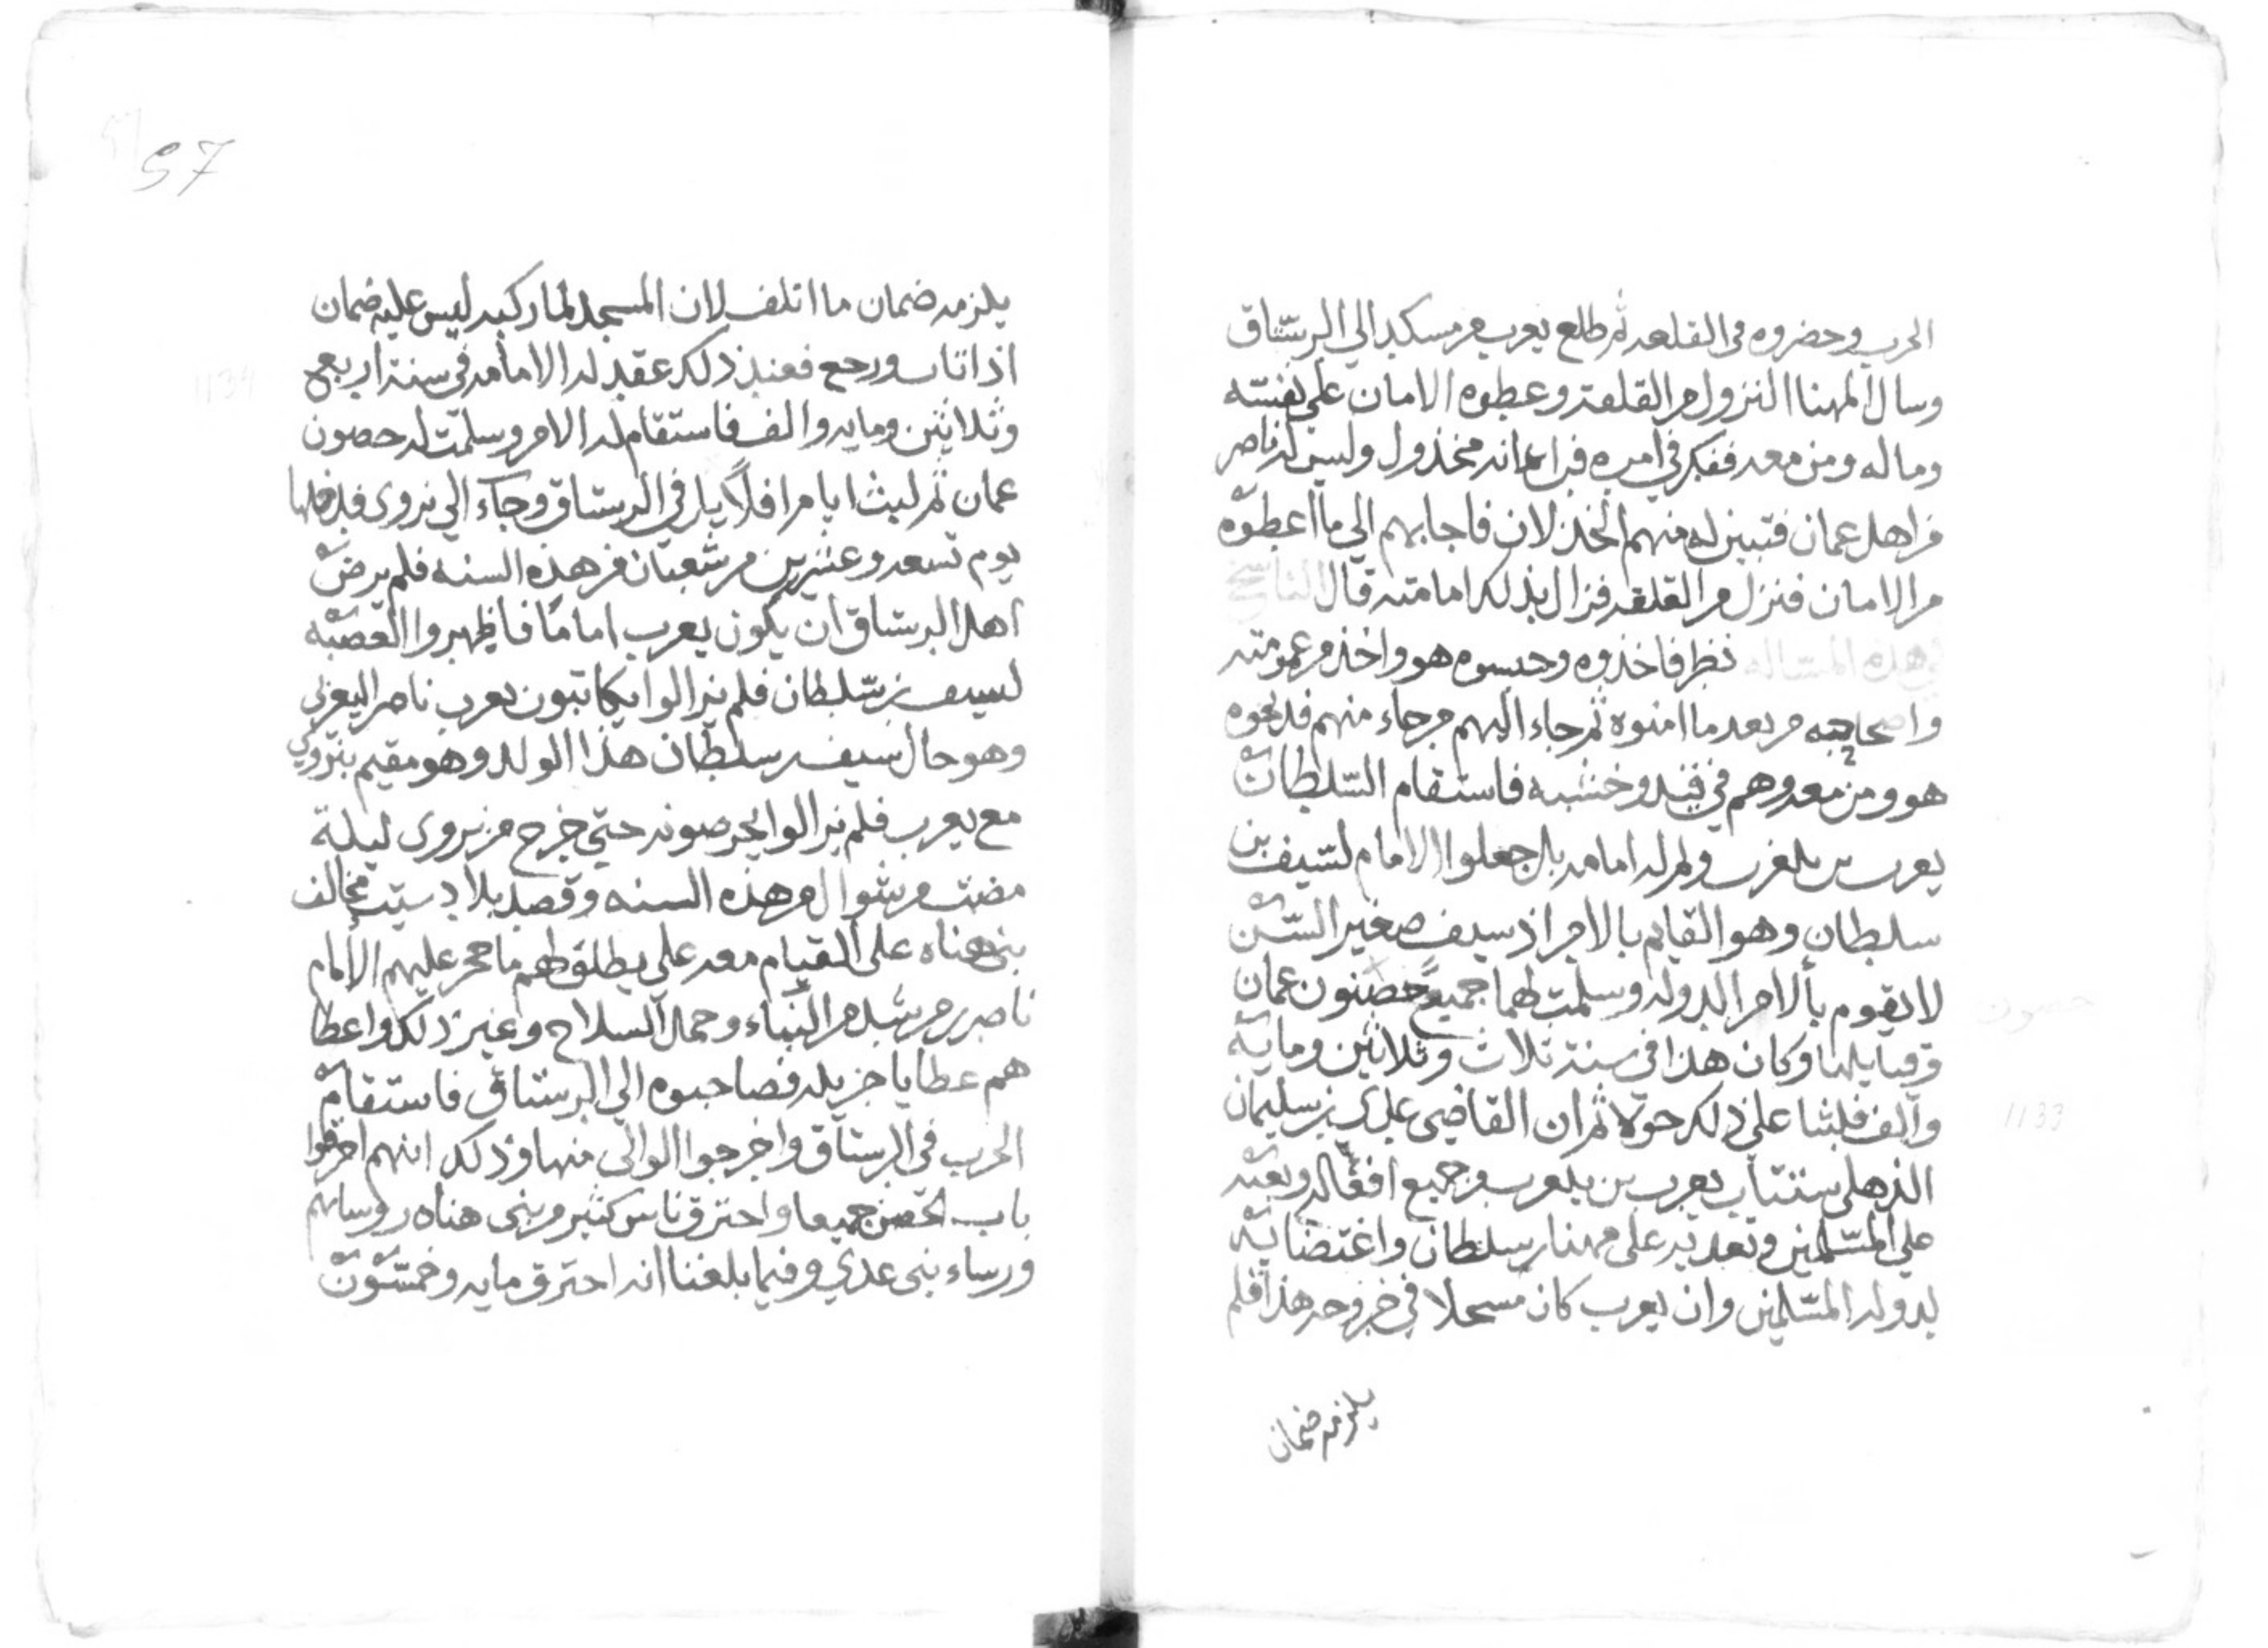 الحرب وحضروه في القلعه ثم طلع يعرب من مسكد الي الرستاق
وسال المهنا النزول من القلعة وعطوه الامان علي نفسه
وماله ومن معه ففكر في امره فراي انه مخذول وليس له ناصر
من اهل عمان فتبين له منهم الخذلان فاجابهم الي ما اعطوه
من الامان فنزل من القلعه فزال بذلك امامته قال الناسخ
في هذه المساله نظر فاخذوه وحبسوه هو واخذ من عمومته
واصحابه من بعد ما امنوه ثم جاء اليهم من جاء منهم فذبحوه
هو ومن معه وهم في قيد وخشبه فاستقام السلطان
يعرب بن بلعرب ولم له امامه بل جعلوا الامام لسيف بن
سلطان وهو القايم بالامر اذ سيف صغير السن
لا يقوم بالامر الدوله وسلمت لهما جميع حصنون عمان
وقبايلها وكان هذا في سنة ثلاث وثلاثين ومايه
والف فلبثا على ذلك حولا ثم ان القاضي عدي بن سليمان
الذهلي ستتاب يعرب بن بلعرب من جميع افعاله وبغيه
علي المسلمين وتعديه على مهنا بن سلطان واغتضابيه
لدوله المسلمين وان يعرب كان مستحلا في خروجه هذا فلم
يلزمه ضمان
حصون
1133
57
يلزمه ضمان ما اتلف لان المستحل لما ركبه ليس عليه ضمان
اذا تاب ورجع فعند ذلك عقد له الامامه في سنة اربع
وثلاثين ومايه والف فاستقام له الامر وسلمت له حصون
عمان ثم لبث اياما قلايل في الرستاق وجاء الي نزوى فدخلها
يوم تسعه وعشرين من شعبان من هذه السنه فلم يرض
اهل الرستاق ان يكون يعرب اماما فاظهروا العصبه
لسيف بن سلطان فلم يزالوا يكاتبون بعرب ناصر اليعربي
وهو خال سيف بن سلطان هذا الولد وهو مقيم بنزوي
مع يعرب فلم يزالوا يحرصونه حتي خرج من نزوى ليلة
مضت من شوال من هذه السنه وقصد بلاد سيت فحالف
بني هناه على القيام معه علي يطلق لهم ما حجر عليهم الامام
ناصر بن مرشد من البناء وحمل السلاح وغير ذلك واعطا
هم عطايا جزيله فصاحبوه الي الرستاق فاستقام
الحرب في الرستاق واخرجوا الوالي منها وذلك انهم احرقوا
باب الحصن جميعا واحترق ناس كثير من بني هناه روسايهم
ورساء بني عدي وفيما بلغنا انه احترق مايه وخمسون
1134